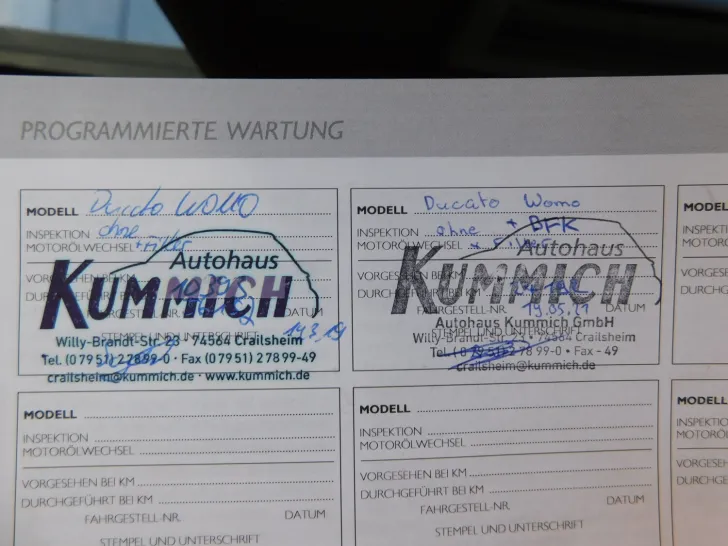 PROGRAMMIERTE WARTUNG
MODELL Ducato WOMO
INSPEKTION ohne
MOTORÖLWECHSEL + Filter
VORGESEHEN BEI KM
DURCHGEFÜHRT BEI KM
DATUM
14.3.19
Autohaus
KUMMICH
Willy-Brandt-Str. 23 · 74564 Crailsheim
STEMPEL UND UNTERSCHRIFT
Tel. (0 79 51) 2 78 99-0 · Fax (0 79 51) 2 78 99-49
crailsheim@kummich.de · www.kummich.de
MODELL Ducato Womo
INSPEKTION ohne + BFK
MOTORÖLWECHSEL + Filter
VORGESEHEN BEI KM
DURCHGEFÜHRT BEI KM
FAHRGESTELL-NR. DATUM
19.05.21
Autohaus
KUMMICH
Autohaus Kummich GmbH
STEMPEL UND UNTERSCHRIFT
Willy-Brandt-Str. 23 · 74564 Crailsheim
Tel. (0 79 51) 2 78 99-0 · Fax - 49
crailsheim@kummich.de
MODELL
INSPEKTI
MOTORÖ
VORGESE
DURCHG
MODELL
INSPEKTION
MOTORÖLWECHSEL
VORGESEHEN BEI KM
DURCHGEFÜHRT BEI KM
FAHRGESTELL-NR. DATUM
STEMPEL UND UNTERSCHRIFT
MODELL
INSPEKTION
MOTORÖLWECHSEL
VORGESEHEN BEI KM
DURCHGEFÜHRT BEI KM
FAHRGESTELL-NR. DATUM
STEMPEL UND UNTERSCHRIFT
MODELL
INSPEKTIO
MOTORÖ
VORGESEH
DURCHGE